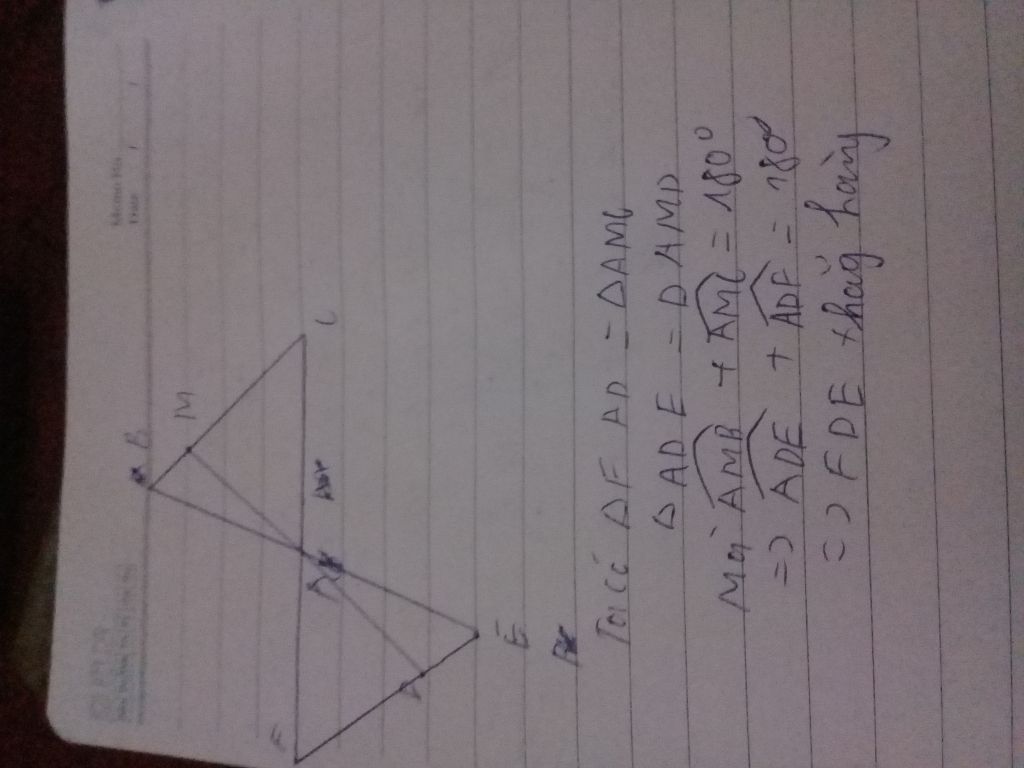 B
M
C
A
F
D
E
Ta có ΔFAD = ΔAMC
ΔADE = ΔAMD
Mà AMB + AMC = 180°
=> ADE + ADF = 180°
=> FDE thẳng hàng